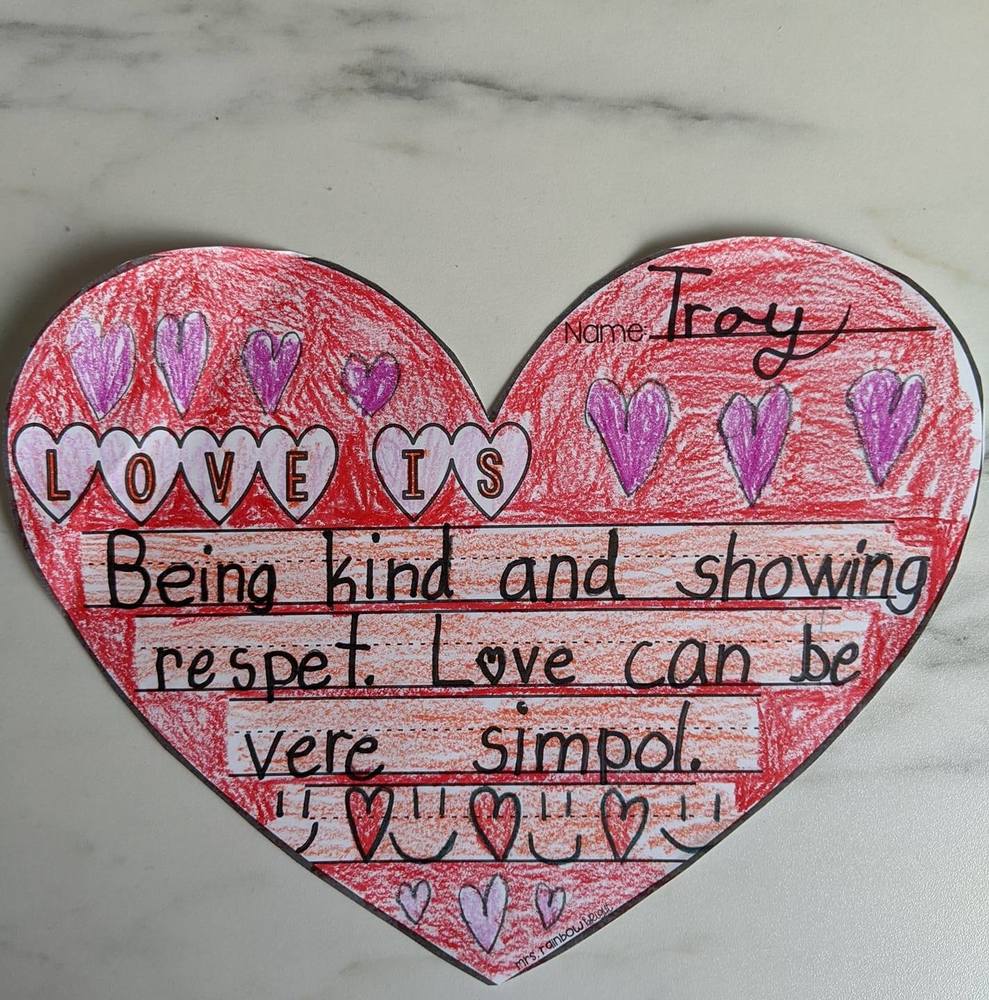 Name: Troy
LOVE IS
Being kind and showing
respet. Love can be
vere simpol.
mrs. rainbow bright